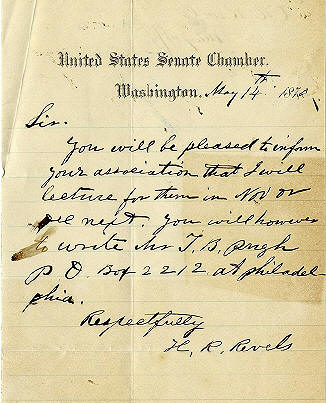 United States Senate Chamber.
Washington, May 14th 1870
Sir.
You will be pleased to inform
your association that I will
lecture for them in Nov or
Dec next. You will however
to write Mr T. B. Pugh
P O. Box 2212 at philadel
phia.
Respectfully
H. R. Revels